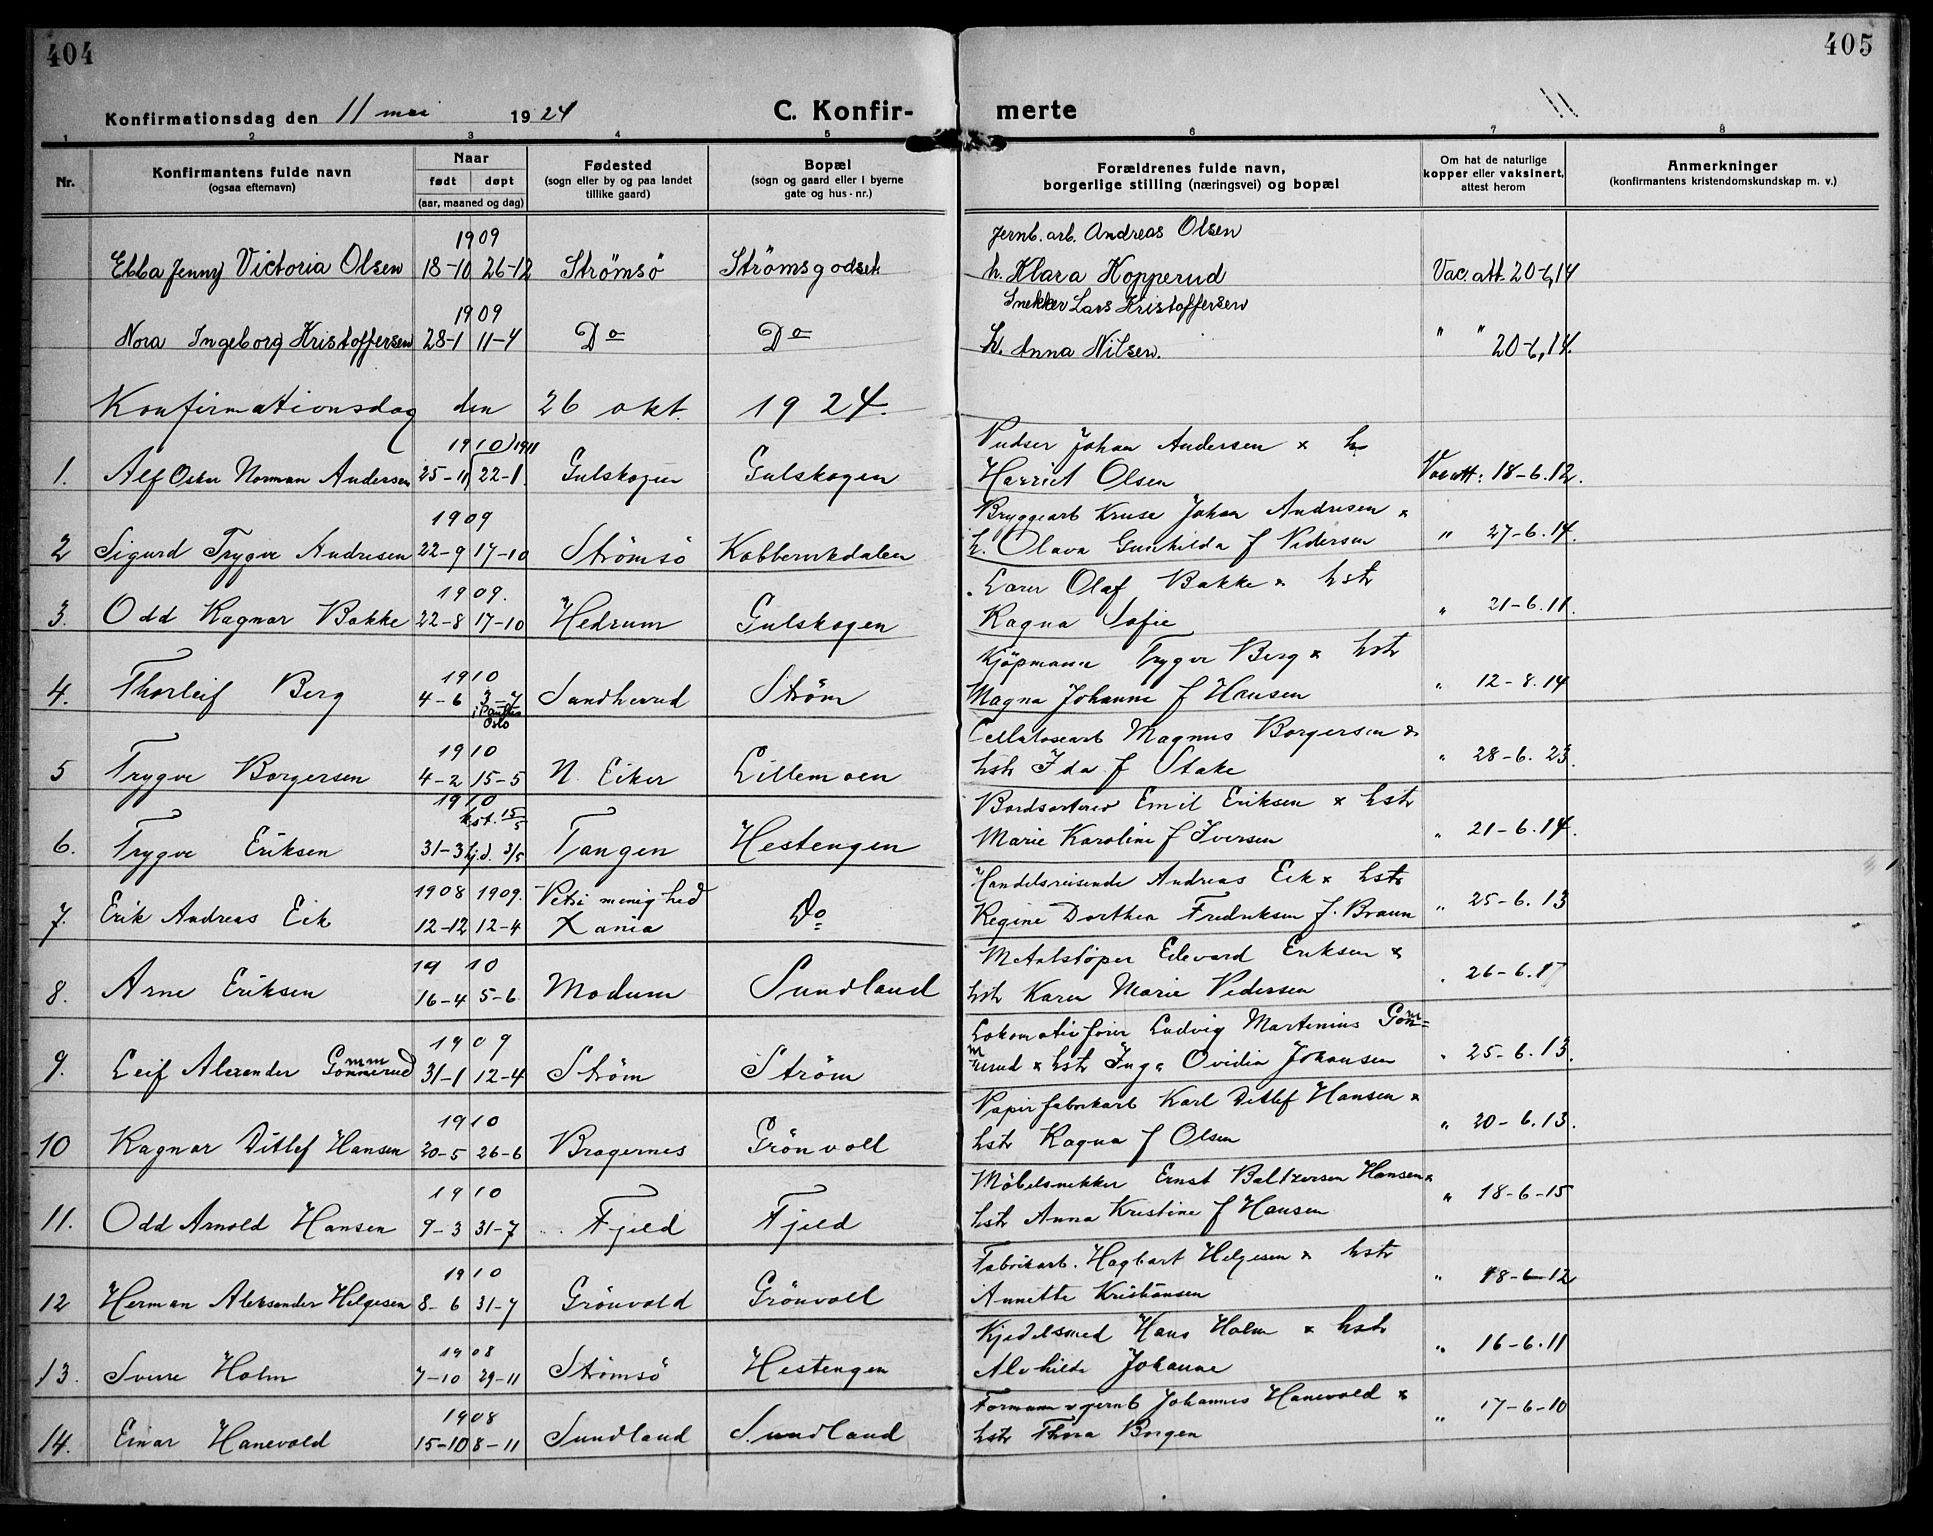 404
405
Konfirmationsdag den 11 mai 1924
C. Konfir-
merte
11
1 2 3 4 5 6 7 8
Nr.
Konfirmantens fulde navn
(ogsaa efternavn)
Naar
født døpt
(aar, maaned og dag)
Fødested
(sogn eller by og paa landet
tillike gaard)
Bopæl
(sogn og gaard eller i byerne
gate og hus-nr.)
Forældrenes fulde navn,
borgerlige stilling (næringsvei) og bopæl
Om hat de naturlige
kopper eller vaksinert,
attest herom
Anmerkninger
(konfirmantens kristendomskundskap m. v.)
1909 Jernb. arb. Andreas Olsen
Ebba Jenny Victoria Olsen 18-10 26-12 Strömsö Strömsgodset h. Klara Kopperud Vac. att. 20-6,14
1909 Snekker Lars Kristoffersen
Nora Ingeborg Kristoffersen 28-1 11-4 Do Do h. Anna Nilsen. " " 20-6,14.
Konfirmationsdag den 26 okt. 1924.
1910) 1911 Pudser Johan Andersen × h
1. Alf Oskar Norman Andersen 25-11 22-1. Gulskogen Gulskogen Harriet Olsen Vac att: 18-6.12.
1909 Bryggearb Kruse Johan Andresen ×
2 Sigurd Trygve Andresen 22-9 17-10 Strömsö Kobbervikdalen h. Olava Gunhilda f Pedersen " 27-6.14.
1909. Lærer Olaf Bakke × hstr
3. Odd Ragnar Bakke 22-8 17-10 Hedrum Gulskogen Ragna Sofie " 21-6.11.
1910 Kjöpmann Trygve Berg × hstr
4. Thorleif Berg 4-6 3-7 i Paulus Oslo Sandherred Ström Magna Johanne f Hansen " 12-8.14
1910 Cellulosearb Magnus Borgersen ×
5 Trygve Borgersen 4-2 15-5 N. Eiker Lillemoen hstr Ida f Stake " 28-6.23.
1910 kst. 15/5 Bordsorterer Emil Eriksen × hstr
6. Trygve Eriksen 31-3 hj.d. 3/5 Tangen Hestengen Marie Karoline f Iversen " 21-6.14.
1908 1909. Petri menighed Handelsreisende Andreas Eek × hstr
7. Erik Andreas Eek 12-12 12-4 Xania Do Regine Dorthea Fredriksen f. Braun " 25-6.13
1910 Metalstöper Edevard Eriksen ×
8. Arne Eriksen 16-4 5-6 Modum Sundland hstr Karen Marie Pedersen " 26-6.17
1909 Lokomotivförer Ludvig Martinius Gom=
9. Leif Alexander Gommerud 31-1 12-4 Ström Ström merud × hstr Inga Ovidia Johansen " 25-6.13.
1910 Papirfabrikarb Karl Ditlef Hansen ×
10 Ragnar Ditlef Hansen 20-5 26-6 Bragernes Grönvoll hstr Ragna f Olsen " 20-6.13.
1910 Möbelsnekker Ernst Baltzersen Hansen ×
11. Odd Arnold Hansen 9-3 31-7 Fjeld Fjeld hstr Anna Kristine f Hansen " 18-6-15
1910 Fabrikarb. Hagbart Helgesen × hstr
12 Herman Aleksander Helgesen 8-6 31-7 Grönvold Grönvoll Annette Kristiansen " 18-6-12
1908 Kjedelsmed Hans Holm × hstr
13. Sverre Holm 7-10 29-11 Strömsö Hestengen Alvhilde Johanne " 16-6.11
1908 Formann v jernb Johannes Hanevold ×
14. Einar Hanevold 15-10 8-11 Sundland Sundland hstr Thora Borgen " 17-6-10